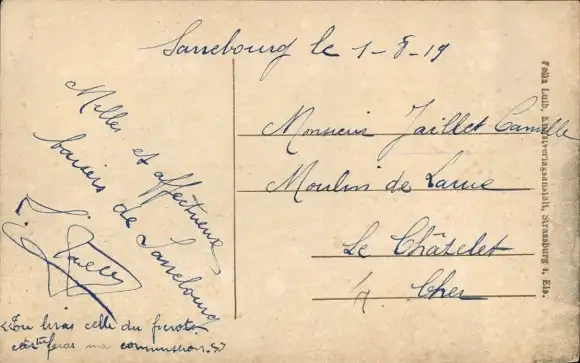 Sarrebourg le 1-8-19
Milles et affectueux
baisers de Sarrebourg
Monsieur Jaillet Camille
Moulin de Larue
Le Châtelet
Cher
Tu liras celle du
feras ma commission.
Felix Luib, Kunstverlagsanstalt, Strassburg i. Els.